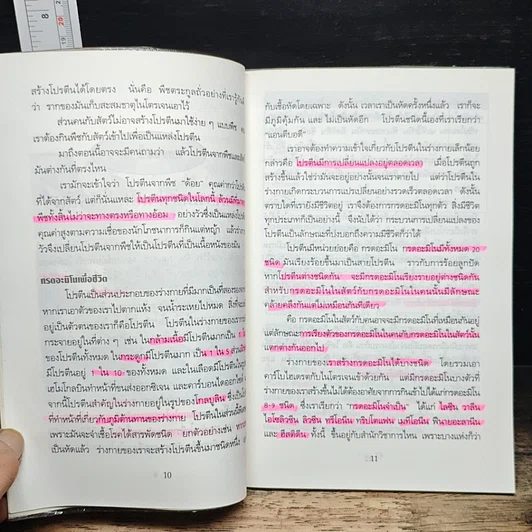 สร้างโปรตีนได้โดยตรง นั่นคือ พืชตระกูลถั่วอย่างที่เรารู้กัน
ว่า รากของมันเก็บสะสมธาตุไนโตรเจนเอาไว้
ส่วนคนกับสัตว์ไม่อาจสร้างโปรตีนมาใช้ง่าย ๆ แบบพืช
เราต้องกินพืชกับสัตว์เข้าไปเพื่อเป็นแหล่งโปรตีน
มาถึงตอนนี้อาจจะมีคนถามว่า แล้วโปรตีนจากพืชและสัตว์
มันต่างกันที่ตรงไหน
เรามักจะเข้าใจว่า โปรตีนจากพืช "ด้อย" คุณค่ากว่าโปรตีน
ที่ได้จากสัตว์ แต่ก็นั่นแหละ โปรตีนทุกชนิดในโลกนี้ ล้วนมีที่มาจาก
พืชทั้งสิ้นไม่ว่าจะทางตรงหรือทางอ้อม อย่างวัวซึ่งเป็นแหล่งโปรตีน
คุณค่าสูงตามความเชื่อของนักโภชนาการก็กินแต่หญ้า แล้วร่าง
วัวจึงเปลี่ยนโปรตีนจากพืชให้เป็นโปรตีนที่เป็นเนื้อหนังของมัน
กรดอะมิโนเพื่อชีวิต
โปรตีนเป็นส่วนประกอบของร่างกายที่มีมากเป็นที่สองรอง
หากเราเอาตัวของเราไปตากแห้ง จนน้ำระเหยไปหมด สิ่งที่
อยู่เป็นตัวตนของเราก็คือโปรตีน โปรตีนในร่างกายของเรา
กระจายอยู่ในที่ต่าง ๆ เช่น ในกล้ามเนื้อมีโปรตีนมากเป็น
ของโปรตีนทั้งหมด ในกระดูกมีโปรตีนมาก เป็น 1 ใน 5 ส่วน
มีโปรตีนอยู่ 1 ใน 10 ของทั้งหมด และในเลือดมีโปรตีนใน
เฮโมโกลบินทำหน้าที่ขนส่งออกซิเจน และคาร์บอนไดออกไซด์
จากนี้โปรตีนสำคัญในร่างกายอยู่ในรูปของโกลบูลิน ซึ่งเป็น
ที่ทำหน้าที่เกี่ยวกับภูมิต้านทานของร่างกาย โปรตีนในส่วนนี้
เพราะมันจะจำเชื้อโรคได้สารพัดชนิด ยกตัวอย่างเช่น
เป็นหัดแล้ว ร่างกายของเราจะสร้างโปรตีนขึ้นมาชนิดหนึ่ง
10
กับเชื้อหัดโดยเฉพาะ ดังนั้น เวลาเราเป็นหัดครั้งหนึ่งแล้ว เราก็จะ
มีภูมิคุ้มกัน และ ไม่เป็นหัดอีก โปรตีนชนิดนี้เองที่เราเรียกว่า
"แอนติบอดี"
เราอาจต้องทำความเข้าใจเกี่ยวกับโปรตีนในร่างกายเล็กน้อย
กล่าวคือ โปรตีนมีการเปลี่ยนแปลงอยู่ตลอดเวลา เมื่อโปรตีนถูก
สร้างขึ้นแล้วใช่ว่ามันจะอยู่อย่างนั้นจนเราตายไป แต่ว่าโปรตีนใน
ร่างกายเกิดกระบวนการแปรเปลี่ยนอย่างรวดเร็วตลอดเวลา ดังนั้น
ตราบใดที่เรายังมีชีวิตอยู่ เราจึงต้องการกรดอะมิโนทุกตัว สิ่งมีชีวิต
ทุกประเภทก็เป็นอย่างนี้ จึงนับได้ว่า กระบวนการเปลี่ยนแปลงของ
โปรตีนเป็นลักษณะที่บ่งบอกถึงความมีชีวิตก็ว่าได้
โปรตีนมีหน่วยย่อยคือ กรดอะมิโน กรดอะมิโนมีทั้งหมด 20
ชนิด มันเรียงร้อยขึ้นมาเป็นสายโปรตีน ราวกับการร้อยลูกปัด
หากโปรตีนต่างชนิดกัน จะมีกรดอะมิโนเรียงรายอยู่ต่างชนิดกัน
สำหรับกรดอะมิโนในสัตว์กับกรดอะมิโนในคนนั้นมีลักษณะ
คล้ายคลึงกันแต่ไม่เหมือนกันทีเดียว
คือ กรดอะมิโนในสัตว์กับคนอาจจะมีกรดอะมิโนที่เหมือนกันอยู่
แต่ลักษณะการเรียงตัวของกรดอะมิโนในคนกับกรดอะมิโนในสัตว์นั้น
แตกต่างกันออกไป
ร่างกายของเราสร้างกรดอะมิโนได้บางชนิด โดยรวมเอา
คาร์โบไฮเดรตกับไนโตรเจนเข้าด้วยกัน แต่มีกรดอะมิโนบางตัวที่
ร่างกายของเราสร้างเองไม่ได้
8-9 ชนิด ซึ่งเราเรียกว่า "กรดอะมิโนจำเป็น" ได้แก่ ไลซีน วาลีน
ไอโซลิวซีน ลิวซีน ทรีโอนีน ทริปโตแฟน เมทิโอนีน ฟีนายอะลานีน
และ ฮีสติดีน ทั้งนี้ ขึ้นอยู่กับสำนักวิชาการไหน เพราะบางแห่งก็ว่า
11